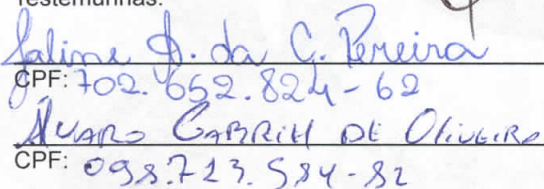 Testemunhas:
Jaline D. da C. Pereira
CPF: 702.652.824-62
ÁLVARO GABRIEL DE OLIVEIRA
CPF: 098.723.584-82